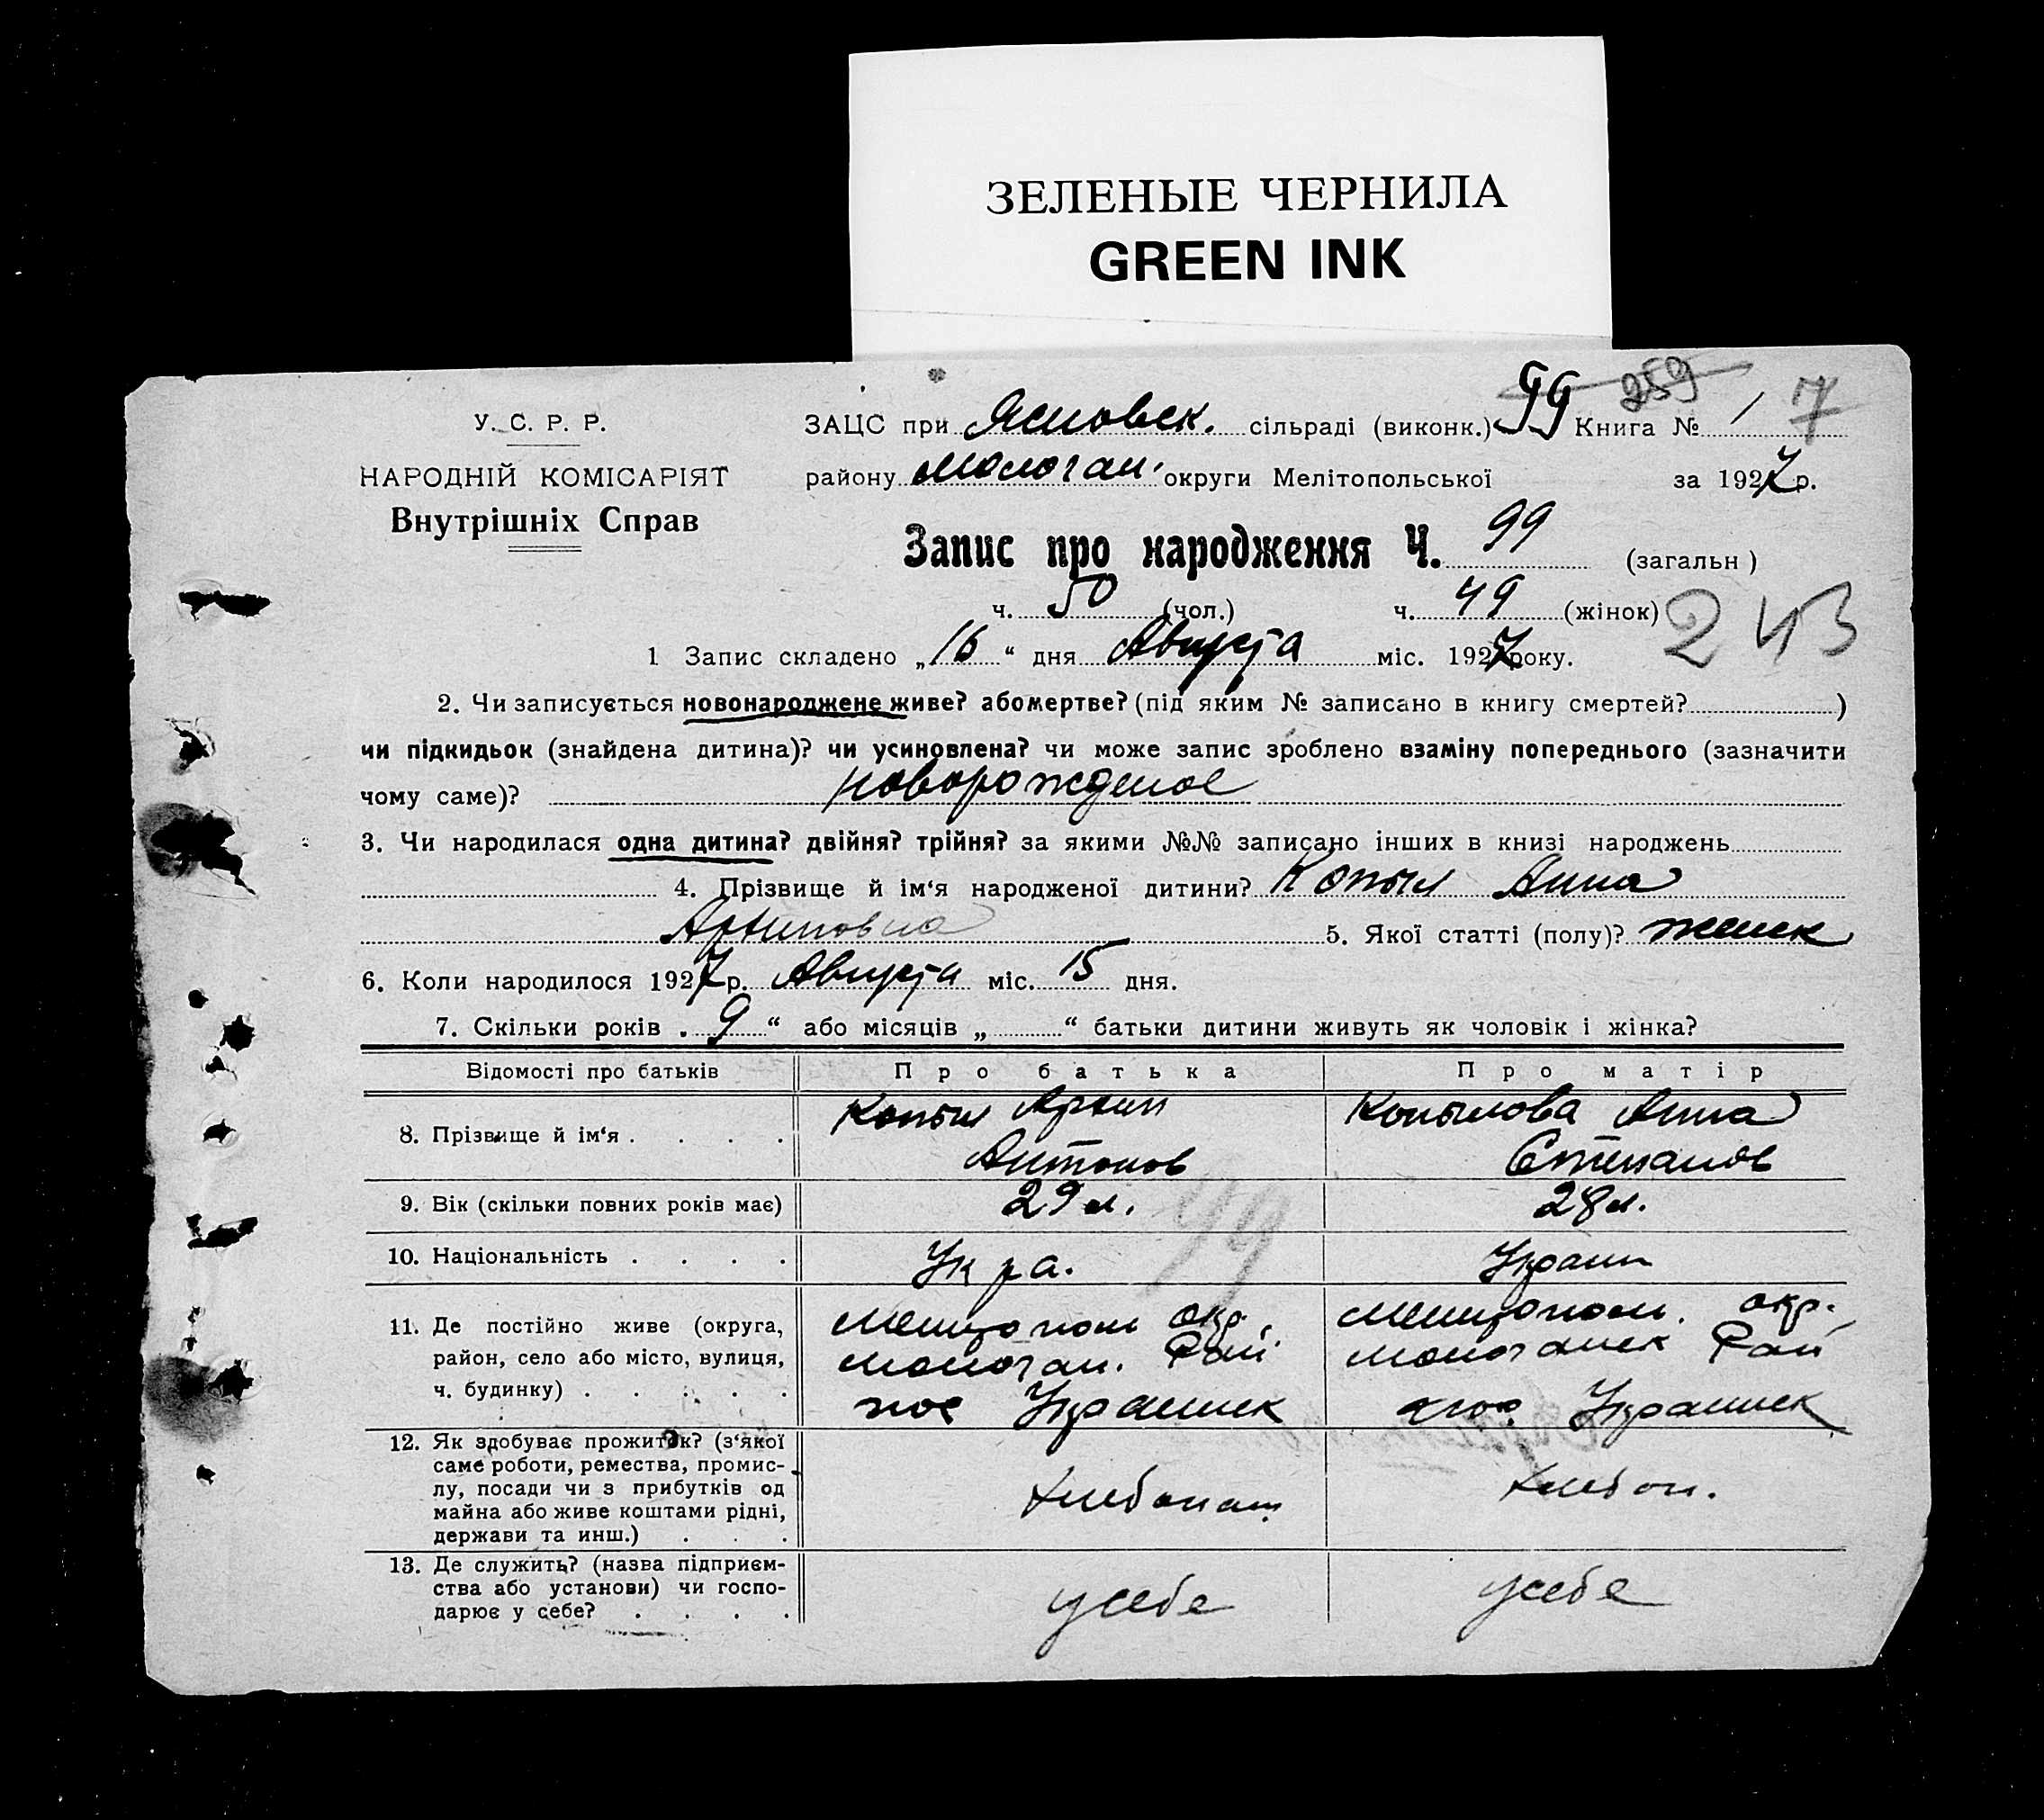 ЗЕЛЕНЫЕ ЧЕРНИЛА
GREEN INK
259
У. С. Р. Р.
ЗАЦС при Ясновск. сільраді (виконк.) 99 Книга № 1 7
НАРОДНІЙ КОМІСАРІЯТ
району Молочан. округи Мелітопольської за 1927 р.
Внутрішніх Справ
Запис про народження Ч. 99 (загальн)
ч. 50 (чол.) ч. 49 (жінок)
243
1 Запис складено „16“ дня Августа міс. 1927 року.
2. Чи записується новонароджене живе? або мертве? (під яким № записано в книгу смертей? )
чи підкидьок (знайдена дитина)? чи усиновлена? чи може запис зроблено взаміну попереднього (зазначити
чому саме)? новорожденое
3. Чи народилася одна дитина? двійня? трійня? за якими №№ записано інших в книзі народжень
4. Прізвище й ім‘я народженої дитини? Копыл Анна
Архиповна 5. Якої статті (полу)? женск
6. Коли народилося 1927 р. Августа міс. 15 дня.
7. Скільки років „9“ або місяців „ “ батьки дитини живуть як чоловік і жінка?
Відомості про батьків Про батька Про матір
8. Прізвище й ім‘я . . . . Копыл Архип Антонов Копылова Анна Степанов
9. Вік (скільки повних років має) 29 л. 28 л.
99
10. Національність . . . . Укра. Украин
11. Де постійно живе (округа, Мелитопол окр. Мелитопол. окр.
район, село або місто, вулиця, Молочан. Рай Молочанск Рай
ч. будинку) . . . . . пос Украинск пос Украинск
12. Як здобуває прожиток? (з‘якої
саме роботи, ремества, промис-
лу, посади чи з прибутків од Хлебопаш Хлебоп.
майна або живе коштами рідні,
держави та инш.) . . .
13. Де служить? (назва підприєм-
ства або установи) чи госпо- у себе у себе
дарює у себе? . . . .